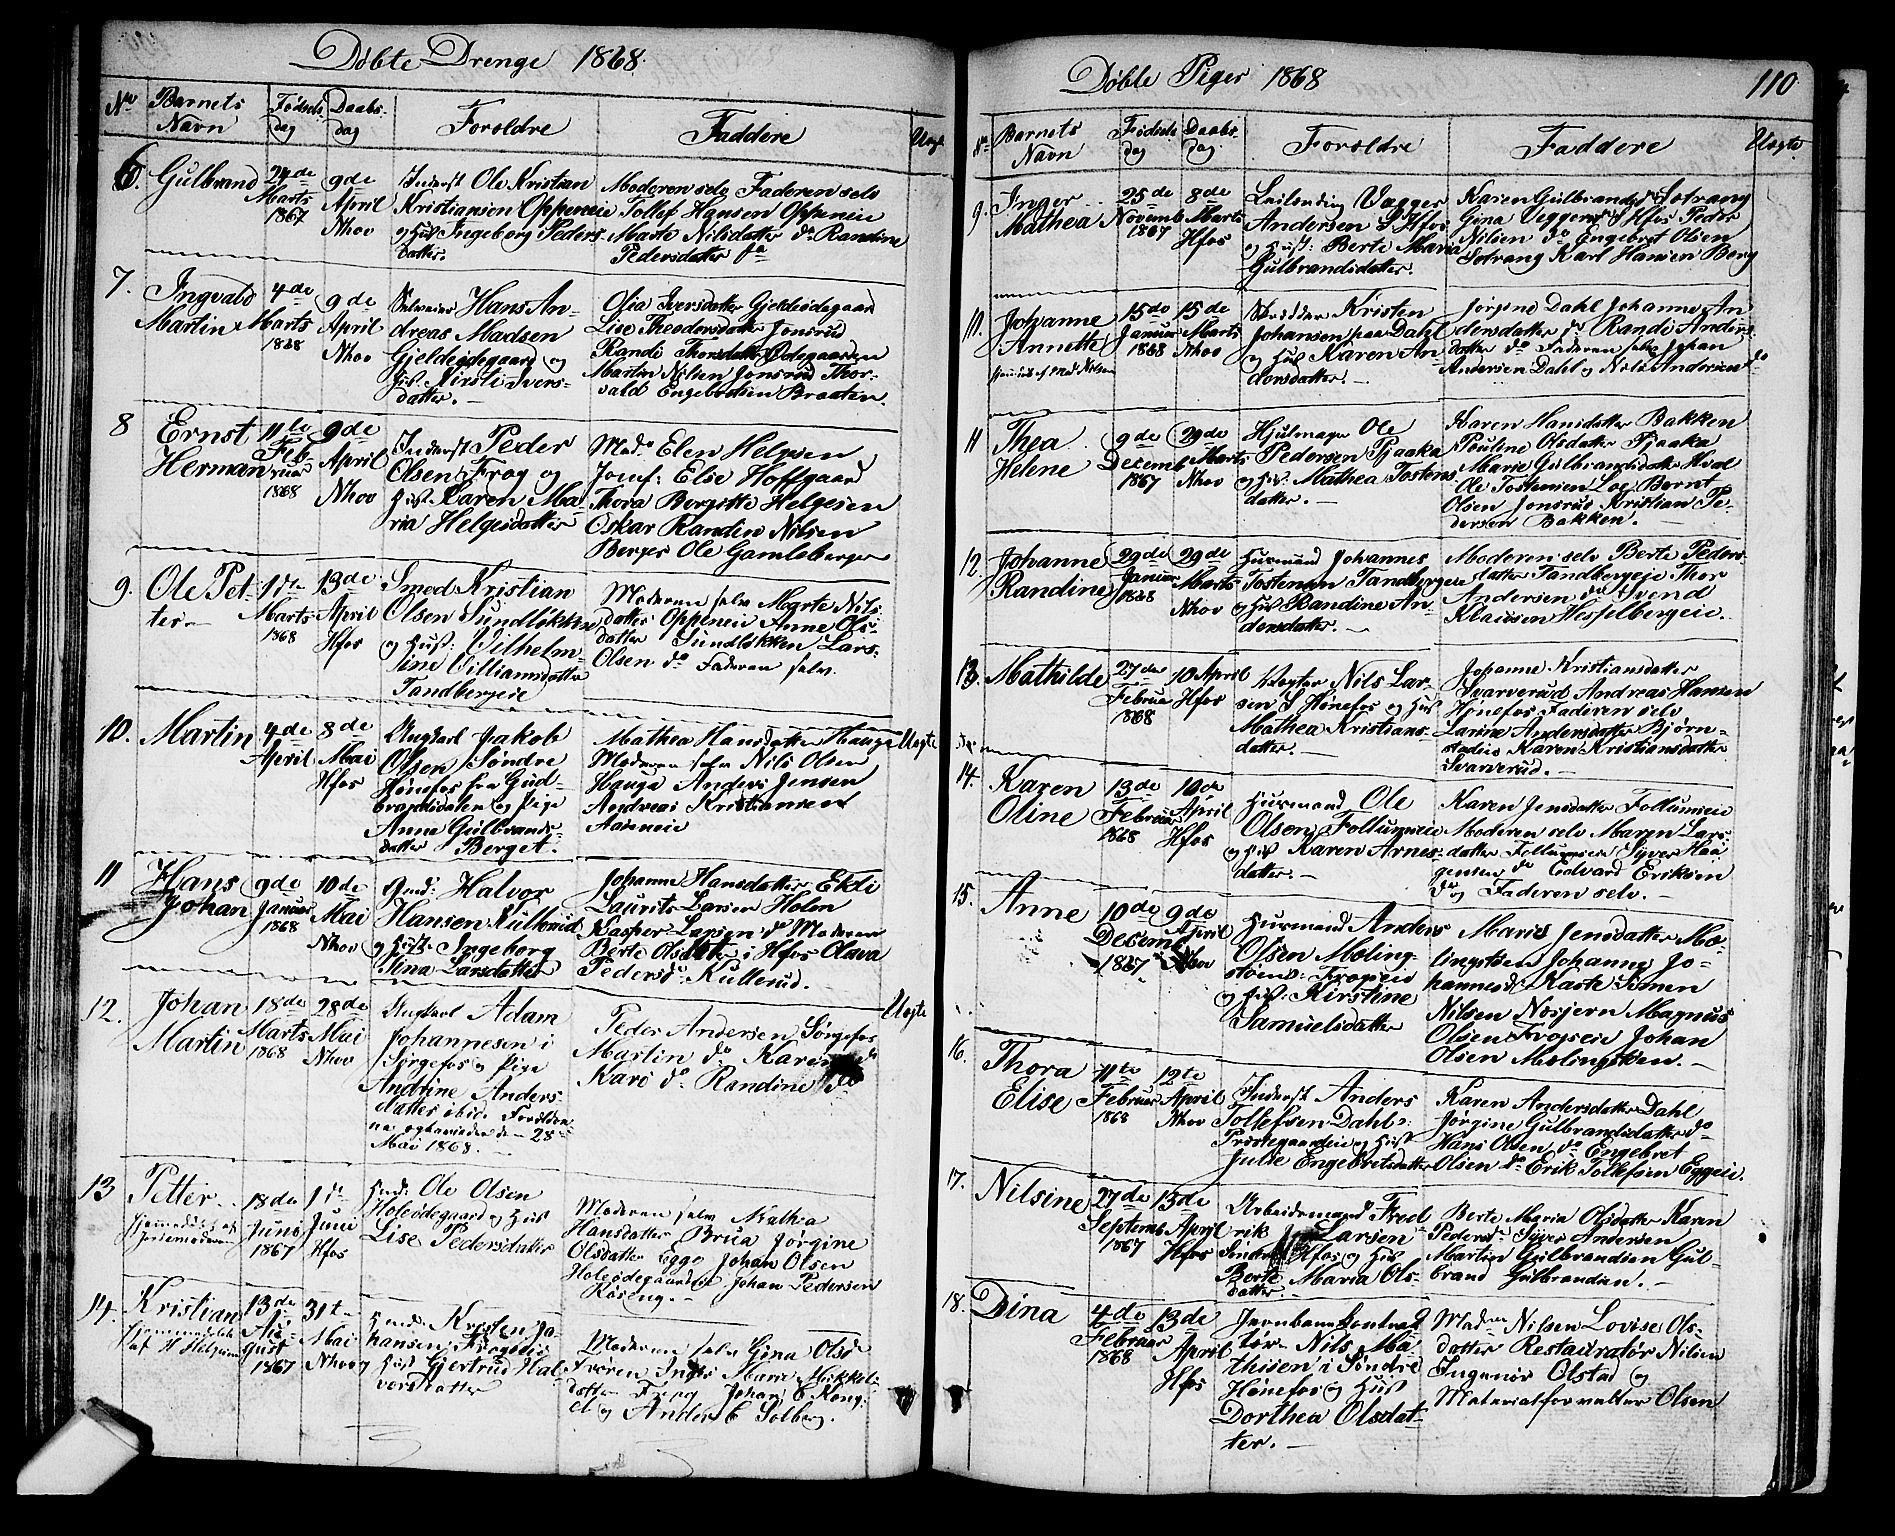 Døbte Drenge 1868.
No
Barnets
Navn
Fødsels
dag
Daabs
dag
Foreldre
Faddere
Uægt
6.
Gulbrand
24de
Marts
1867
9de
April
Nhov
Inderst Ole Kristian
Kristiansen Oppeneie
og Hust Ingeborg Peders
datter.
Moderen selv Faderen selv
Tollef Hansen Oppeneie
Marte Nilsdatter do Randine
Pedersdatter do
7.
Ingvald
Martin
4de
Marts
1868
9de
April
Nhov
Selveier Hans An-
dreas Madsen
Gjeldeødegaard og
Hust. Kirsti Ivers-
datter.
Olia Iversdatter Gjeldeødegaard
Lise Theodorsdatter Jonsrud
Randi Thorsdatter Ødegaarden
Martin Nilsen Jonsrud Thor-
vald Engebretsen Braaten.
8
Ernst
Herman
11te
Feb-
ruar
1868
9de
April
Nhov
Inderst Peder
Olsen Frog og
Hust. Karen Ma-
ria Helgesdatter
Mad. Elen Helgesen
Jomf: Elise Hoffgaard
Thora Borgitte Helgesen
Oskar Randin Nilsen
Berger Ole Gamleberger
9.
Ole Pet-
ter
1ste
Marts
1868
13de
April
Hfos
Smed Kristian
Olsen Sundløkken
og Hust: Vilhelm-
ine Villiamsdatter
Tandbergeie
Moderen selv Marte Nils
datter Oppeneie Anne Ols-
datter Sundløkken Lars
Olsen do Faderen selv.
10.
Martin
4de
April
8de
Mai
Hfos
Ungkarl Jakob
Olsen Søndre
Hønefos fra Gud-
brandsdalen og Pige
Anne Gulbrands-
datter Berget.
Mathea Hansdatter Hauga
Moderen selv Nils Olsen
Hauga Anders Jensen
Andreas Kristiansen
Aaseneie
Uægte
11
Hans
Johan
9de
Januar
1868
10de
Mai
Nhov
Gmd: Halvor
Hansen Kullerud
og Hust. Ingeborg
Lina Larsdatter
Johanne Hansdatter Ekli
Laurits Larsen Holen
Kasper Larsen do Moderen
Berte Olsdatter i Hfos Olava
Pedersd: Kullerud.
12.
Johan
Martin
18de
Marts
1868
28de
Mai
Nhov
Ungkarl Adam
Johannesen i
Sørgefos og Pige
Andrine Anders
datter ibid. Foreldre
ne egteviedes den 28
Mai 1868.
Peder Andersen Sørgefos
Martin do Karen do
Karo do Randine do
Uægte
13
Petter
hjemmedøbt af
Jordemoderen
18de
Juni
1867
1ste
Juni
Hfos
Hmd: Ole Olsen
Holeødegaard og Hust
Lise Pedersdatter
Moderen selv Mathea
Hansdatter Brua Jørgine
Olsdatter Egge Johan Olsen
Holeødegaardeie Johan Pedersen
Roseng.
14.
Kristian
Hjemmedøbt
af H Helgesen
13de
Au-
gust
1867
31te
Mai
Nhov
Hmd: Kristen Jo-
hansen Frogeie
og Hust Gjertrud Hal-
vorsdatter
Moderen selv Gina Olsd
Tværen Inger Marie Mikkels
datter Frog Johan E Kong-
el og Anders E Solberg.
Døbte Piger 1868
110
No
Barnets
Navn
Fødsels
dag
Daabs
dag.
Foreldre
Faddere
Uægte
9.
Inger
Mathea
25de
Novemb
1867
8de
Marts
Hfos
Leilending Vegger
Andersen S Hfos
og Hust: Berte Maria
Gulbrandsdatter.
Karen Gulbrandsd Sotrang
Gina Veggersd Hfos Peder
Nilsen do Engebret Olsen
Sotrang Karl Hansen Berg
10.
Johanne
Annette
hjemmedøbt af Mad Nilsen
15de
Januar
1868
15de
Marts
Nhov
Skredder Kristen
Johansen paa Dahl
og Hust Karen An-
dersdatter.
Jørgine Dahl Johanne An
dersdatter do Randi Anders
datter do Faderen selv Johan
Andersen Dahl og Nils Andersen do
11
Thea
Helene
9de
Decemb
1867
29de
Marts
Nhov
Hjulmager Ole
Pedersen Pjaaka
og Hust: Mathea Tostens
datter.
Karen Hansdatter Bakken
Pauline Olsdatter Pjaaka
Marie Gulbrandsdatter Hval
Ole Tostensen Loe Bernt
Olsen Jonsrud Kristian Pe-
dersen Bakken.
12
Johanne
Randine
29de
Januar
1868
29de
Marts
Nhov
Husmand Johannes
Tostensen Tandbergeie
og Hust Randine An-
dersdatter.
Moderen selv Berte Peders-
datter Tandbergeie Thor
Andersen do Svend
Klausen Hesselbergeie.
13.
Mathilde
27de
Februar
1868
10 April
Hfos
Nils Lar-
sen S Hønefos og Hust
Mathea Kristians-
datter.
Johanne Kristiansdatter
Svarverud Andreas Hansen
Hønefos Faderen selv
Larine Andersdatter Bjørn-
stadeie Karen Kristiansdatter
Svarverud.
14.
Karen
Oline
13de
Februar
1868
10de
April
Hfos
Husmand Ole
Olsen Follumseie
og Hust Karen Arnes-
datter.
Karen Jensdatter Follumseie
Moderen selv Maren Lars-
datter Follumseie Syver Haa
gensen do Edvard Eriksen
do og Faderen selv.
15.
Anne
10de
Decemb
1867
9de
April
Nhov
Husmand Anders
Olsen Meling-
støen: Frogeie
og Hust: Kirstine
Samuelsdatter
Marie Jensdatter Me-
lingstøen Johanne Jo-
hannesd: Kaste Simen
Nilsen Nosjern Magnus
Olsen Frogeie Johan
Olsen Melingstøen.
16.
Thora
Elise
11te
Februar
1868
12te
April
Nhov
Inderst Anders
Tollefsen Dahl:
Prestegaardeie og Hust
Julie Engebretsdatter
Karen Andersdatter Dahl
Jørgine Gulbrandsdatter do
Hans Olsen do Engebret
Olsen do Erik Tollefsen Eggeie.
17.
Nilsine
27de
Septemb
1867
13de
April
Hfos
Arbeidsmand Fred-
rik Larsen
Søndre Hfos og Hust
Berte Maria Ols-
datter.
Berte Maria Olsdatter Karen
Pedersd: Syver Andersen
Martin Gulbrandsen Gul-
brand Gulbrandsen.
18.
Dina
4de
Februar
1868
13de
April
Hfos
Jernbanekontrol
lør Nils Ma-
thisen i Søndre
Hønefos og Hust
Dorthea Olsdat-
ter.
Madme Nilsen Lovise Ols-
datter Restauratør Nilsen
Ingeniør Olstad og
Materialforvalter Olsen